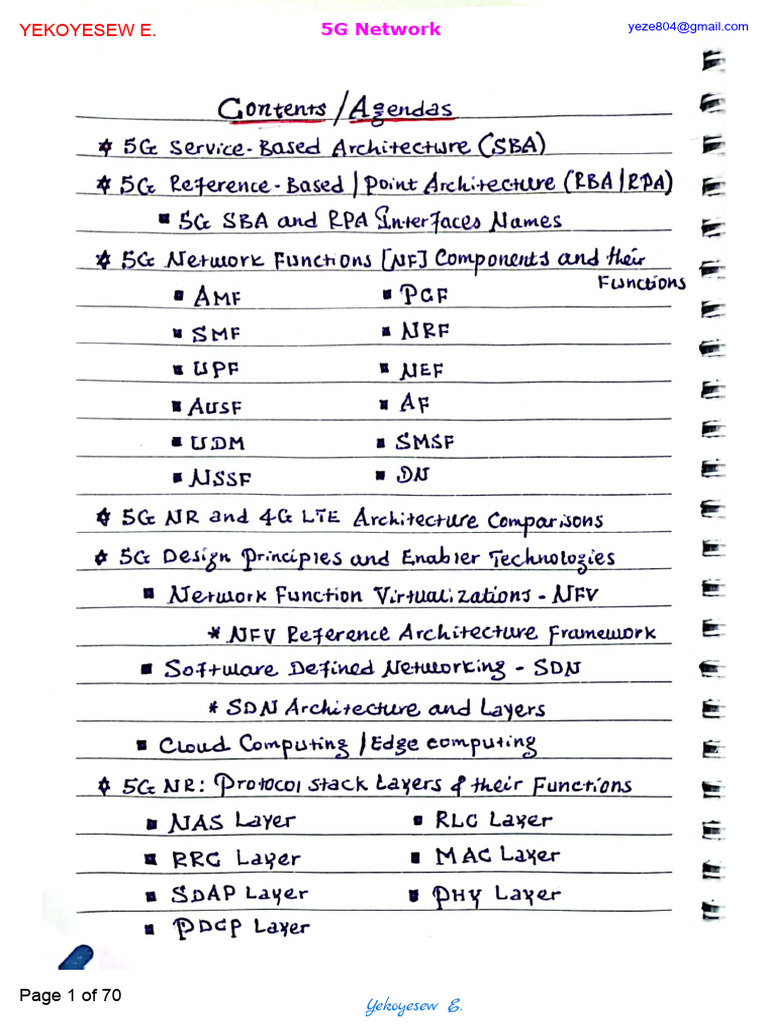 YEKOYESEW E. 5G Network yeze804@gmail.com
Contents/Agendas
5G Service-Based Architecture (SBA)
5G Reference-Based/Point Architecture (RBA/RPA)
5G SBA and RPA Interfaces Names
5G Network Functions [NF] Components and their Functions
AMF PCF
SMF NRF
UPF NEF
AUSF AF
UDM SMSF
NSSF DN
5G NR and 4G LTE Architecture Comparisons
5G Design Principles and Enabler Technologies
Network Function Virtualizations - NFV
* NFV Reference Architecture Framework
Software Defined Networking - SDN
* SDN Architecture and Layers
Cloud Computing/Edge computing
5G NR: Protocol stack Layers & their Functions
NAS Layer RLC Layer
RRC Layer MAC Layer
SDAP Layer PHY Layer
PDCP Layer
Page 1 of 70 Yekoyesew E.